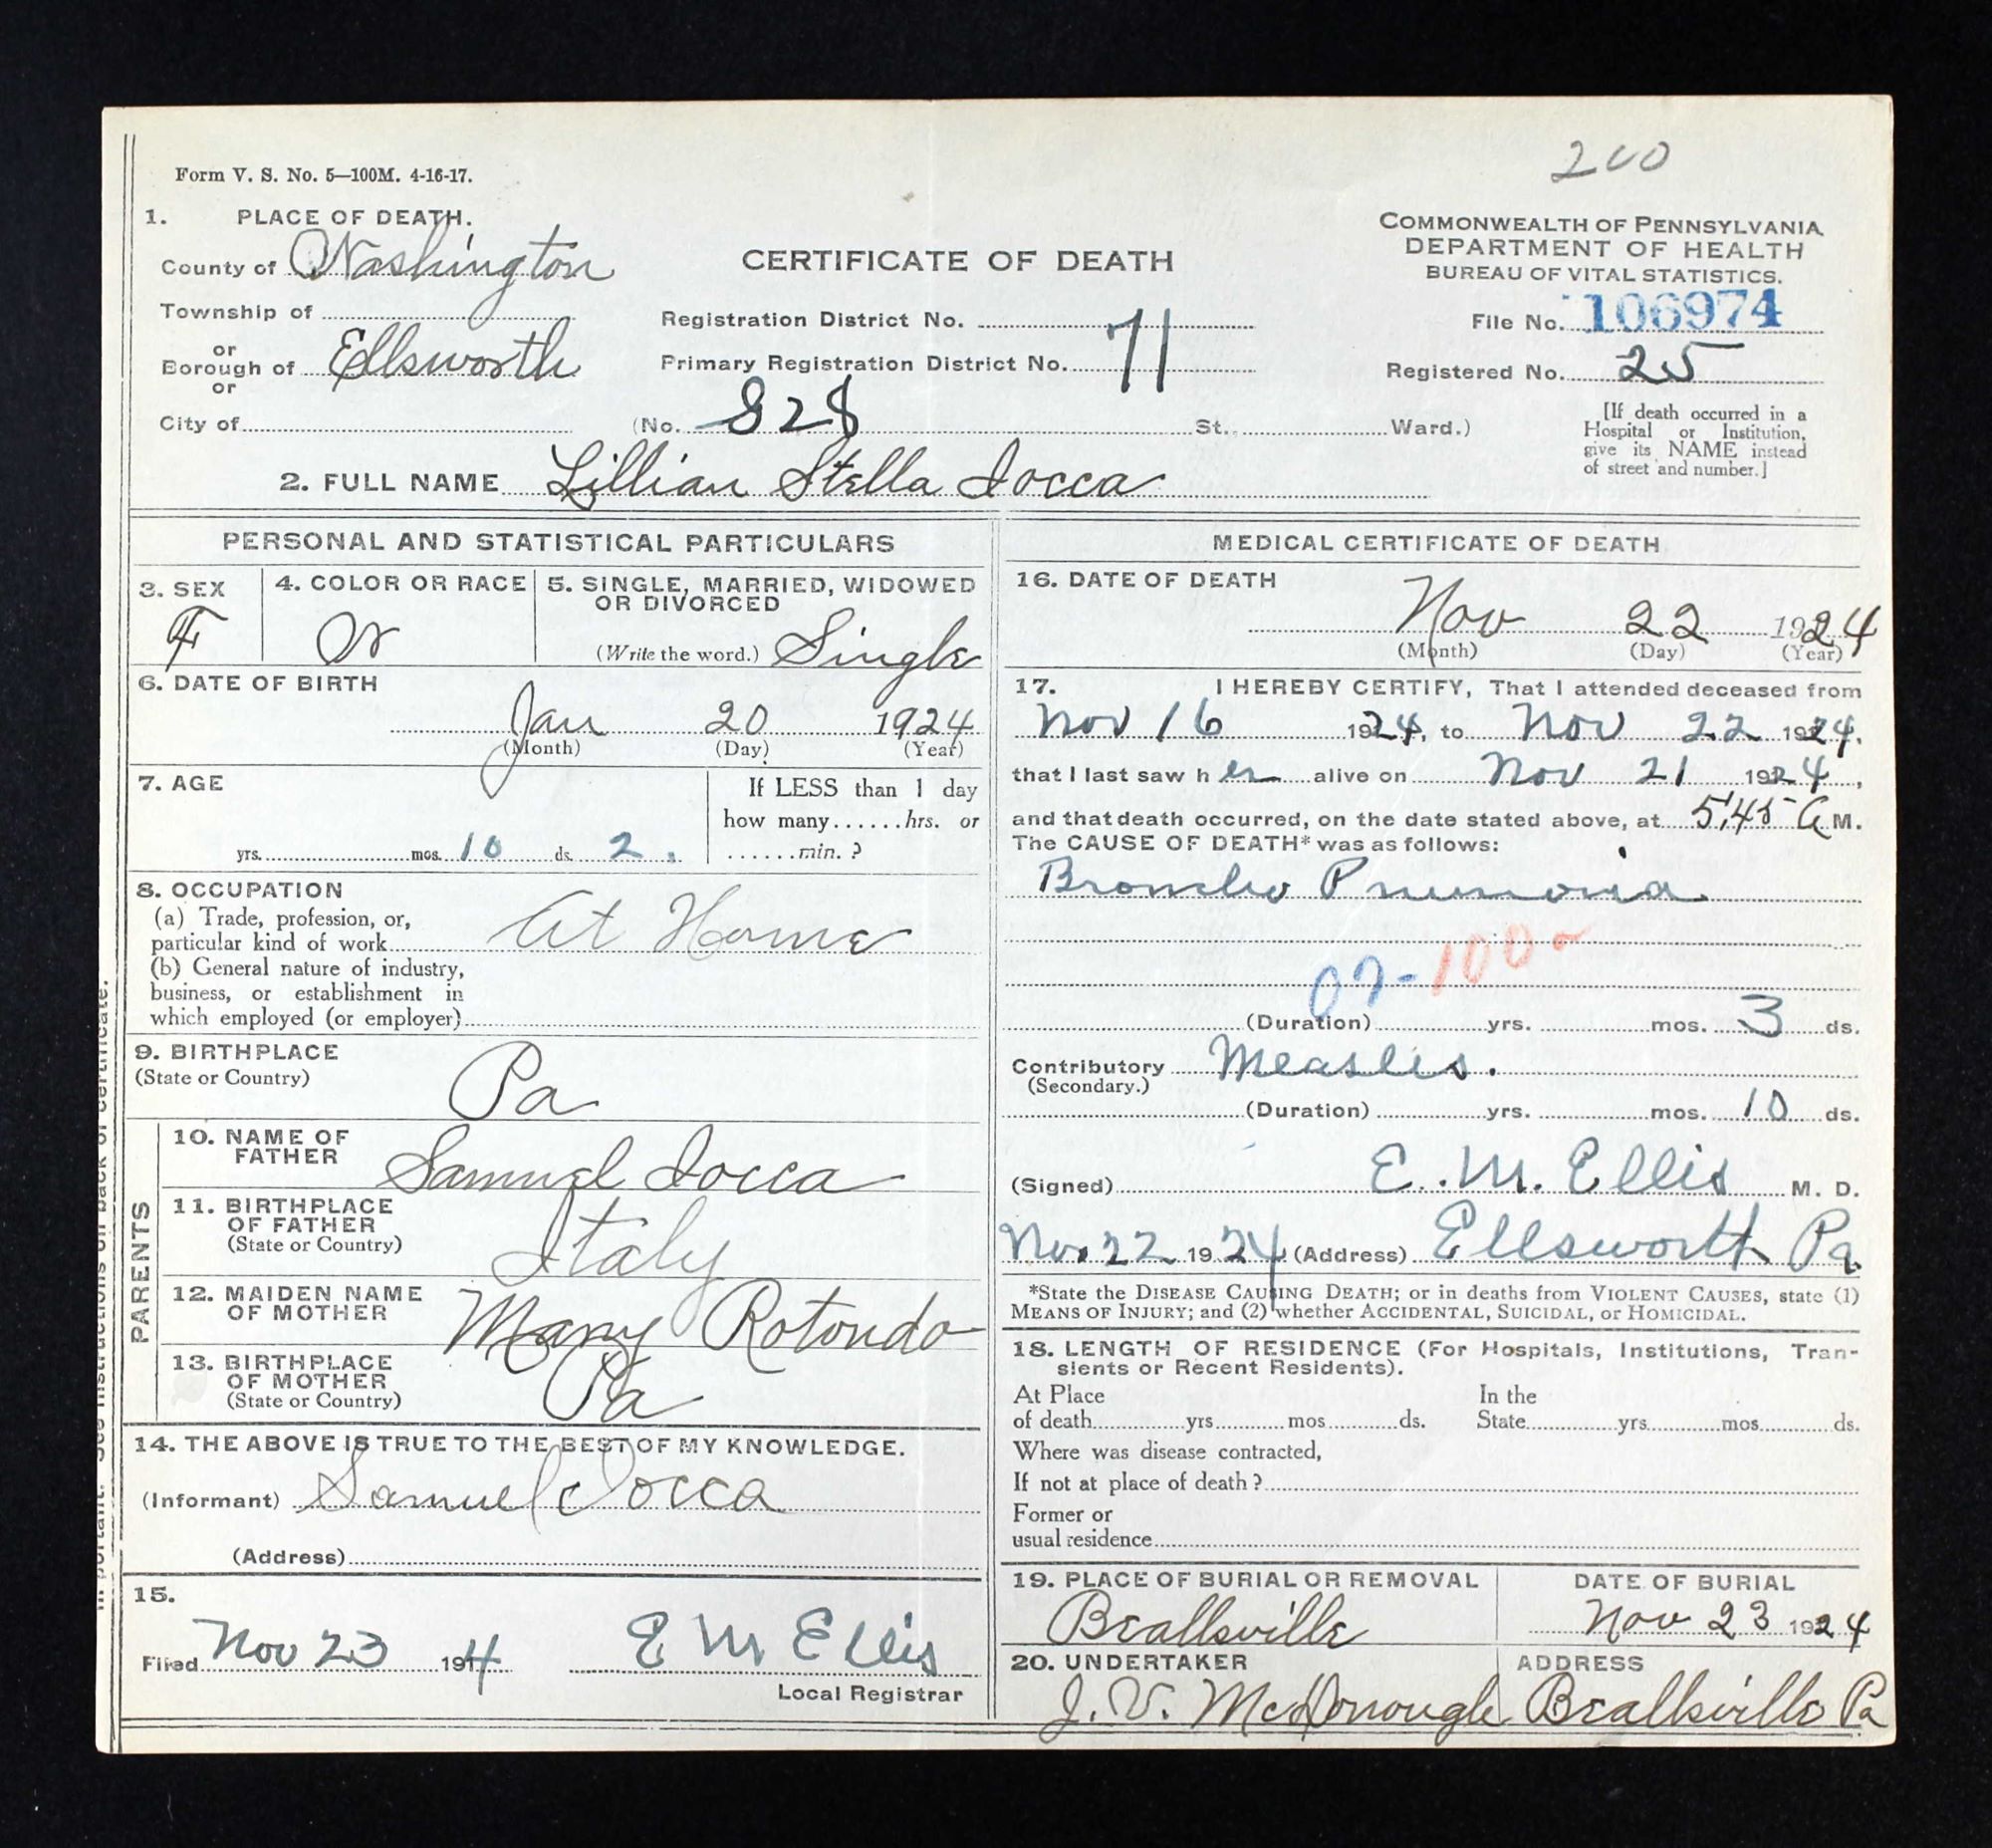 200
Form V. S. No. 5—100M. 4-16-17.
1. PLACE OF DEATH.
County of Washington
Township of
or
Borough of Ellsworth
or
City of
CERTIFICATE OF DEATH
Registration District No.
Primary Registration District No. 71
(No. 828 St., Ward.)
COMMONWEALTH OF PENNSYLVANIA
DEPARTMENT OF HEALTH
BUREAU OF VITAL STATISTICS.
File No. 106974
Registered No. 25
[If death occurred in a
Hospital or Institution,
give its NAME instead
of street and number.]
2. FULL NAME Lillian Stella Iocca
PERSONAL AND STATISTICAL PARTICULARS
3. SEX
F
4. COLOR OR RACE
W
5. SINGLE, MARRIED, WIDOWED
OR DIVORCED
(Write the word.) Single
6. DATE OF BIRTH
Jan 20 1924
(Month) (Day) (Year)
7. AGE
yrs. mos. 10 ds. 2.
If LESS than 1 day
how many......hrs. or
......min. ?
8. OCCUPATION
(a) Trade, profession, or,
particular kind of work At Home
(b) General nature of industry,
business, or establishment in
which employed (or employer)
9. BIRTHPLACE
(State or Country)
Pa
PARENTS
10. NAME OF
FATHER
Samuel Iocca
11. BIRTHPLACE
OF FATHER
(State or Country)
Italy
12. MAIDEN NAME
OF MOTHER
Mary Rotondo
13. BIRTHPLACE
OF MOTHER
(State or Country)
Pa
14. THE ABOVE IS TRUE TO THE BEST OF MY KNOWLEDGE.
(Informant) Samuel Iocca
(Address)
15.
Filed Nov 23 1914 E M Ellis
Local Registrar
MEDICAL CERTIFICATE OF DEATH
16. DATE OF DEATH
Nov 22 1924
(Month) (Day) (Year)
17. I HEREBY CERTIFY, That I attended deceased from
Nov 16 1924, to Nov 22 1924.
that I last saw h er alive on Nov 21 1924,
and that death occurred, on the date stated above, at 5.45 A M.
The CAUSE OF DEATH* was as follows:
Broncho Pnumonia
07-100
(Duration) yrs. mos. 3 ds.
Contributory Measles.
(Secondary.)
(Duration) yrs. mos. 10 ds.
(Signed) E. M. Ellis M. D.
Nov. 22 1924 (Address) Ellsworth Pa.
*State the DISEASE CAUSING DEATH; or in deaths from VIOLENT CAUSES, state (1)
MEANS OF INJURY; and (2) whether ACCIDENTAL, SUICIDAL, or HOMICIDAL.
18. LENGTH OF RESIDENCE (For Hospitals, Institutions, Tran-
sients or Recent Residents).
At Place
of death yrs. mos. ds.
In the
State yrs. mos. ds.
Where was disease contracted,
If not at place of death ?
Former or
usual residence
19. PLACE OF BURIAL OR REMOVAL
Beallsville
DATE OF BURIAL
Nov 23 1924
20. UNDERTAKER
J. V. McDonough
ADDRESS
Beallsville Pa